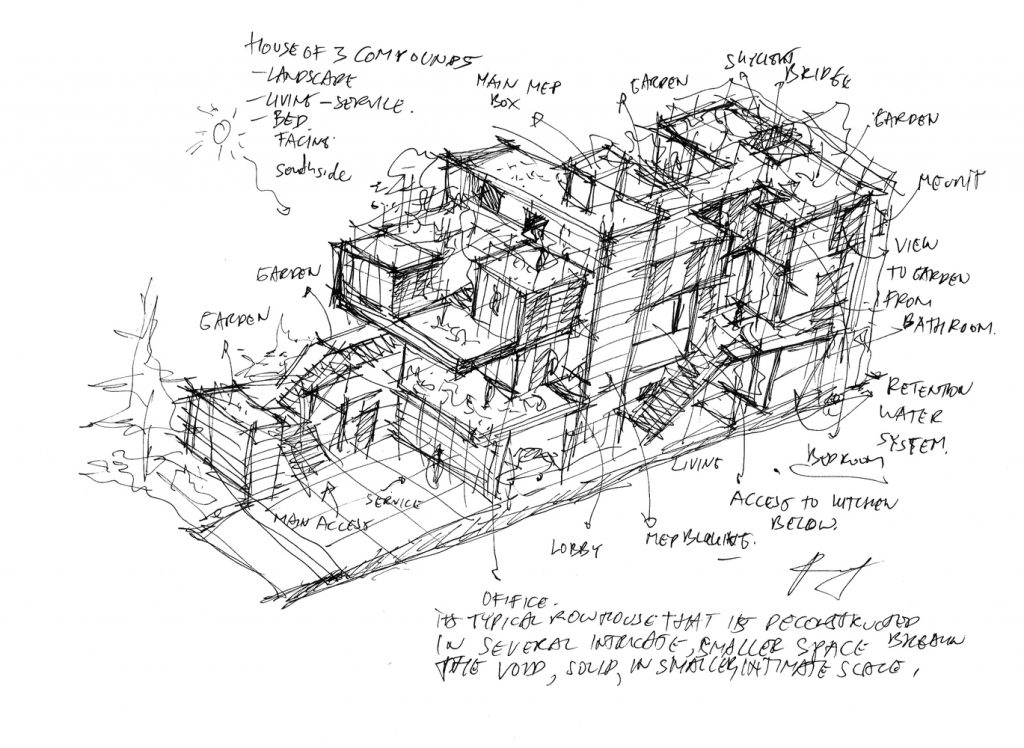 HOUSE OF 3 COMPOUNDS
- LANDSCAPE
- LIVING - SERVICE.
- BED
FACING
Southside
MAIN MEP
BOX
GARDEN
SKYLIGHT
BRIDGE
GARDEN
VIEW
TO GARDEN
FROM
BATHROOM.
RETENTION
WATER
SYSTEM.
BEDROOM
GARDEN
GARDEN
MAIN ACCESS
SERVICE
LIVING
ACCESS TO KITCHEN
BELOW.
LOBBY
MEP
OFIFICE.
ITS TYPICAL ROWHOUSE THAT IS DECONSTRUCTED
IN SEVERAL INTRICATE, SMALLER SPACE
THE VOID, SOLID, IN SMALLER, INTIMATE SCALE,